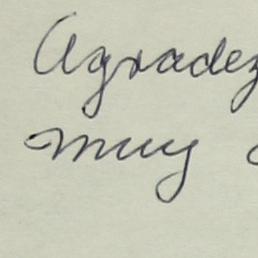 Agradez
muy